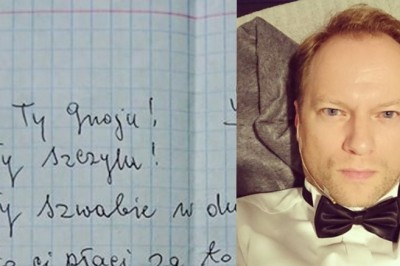 Ty gnoju!
y szczylu!
y szwabie w du
o ci płaci za to